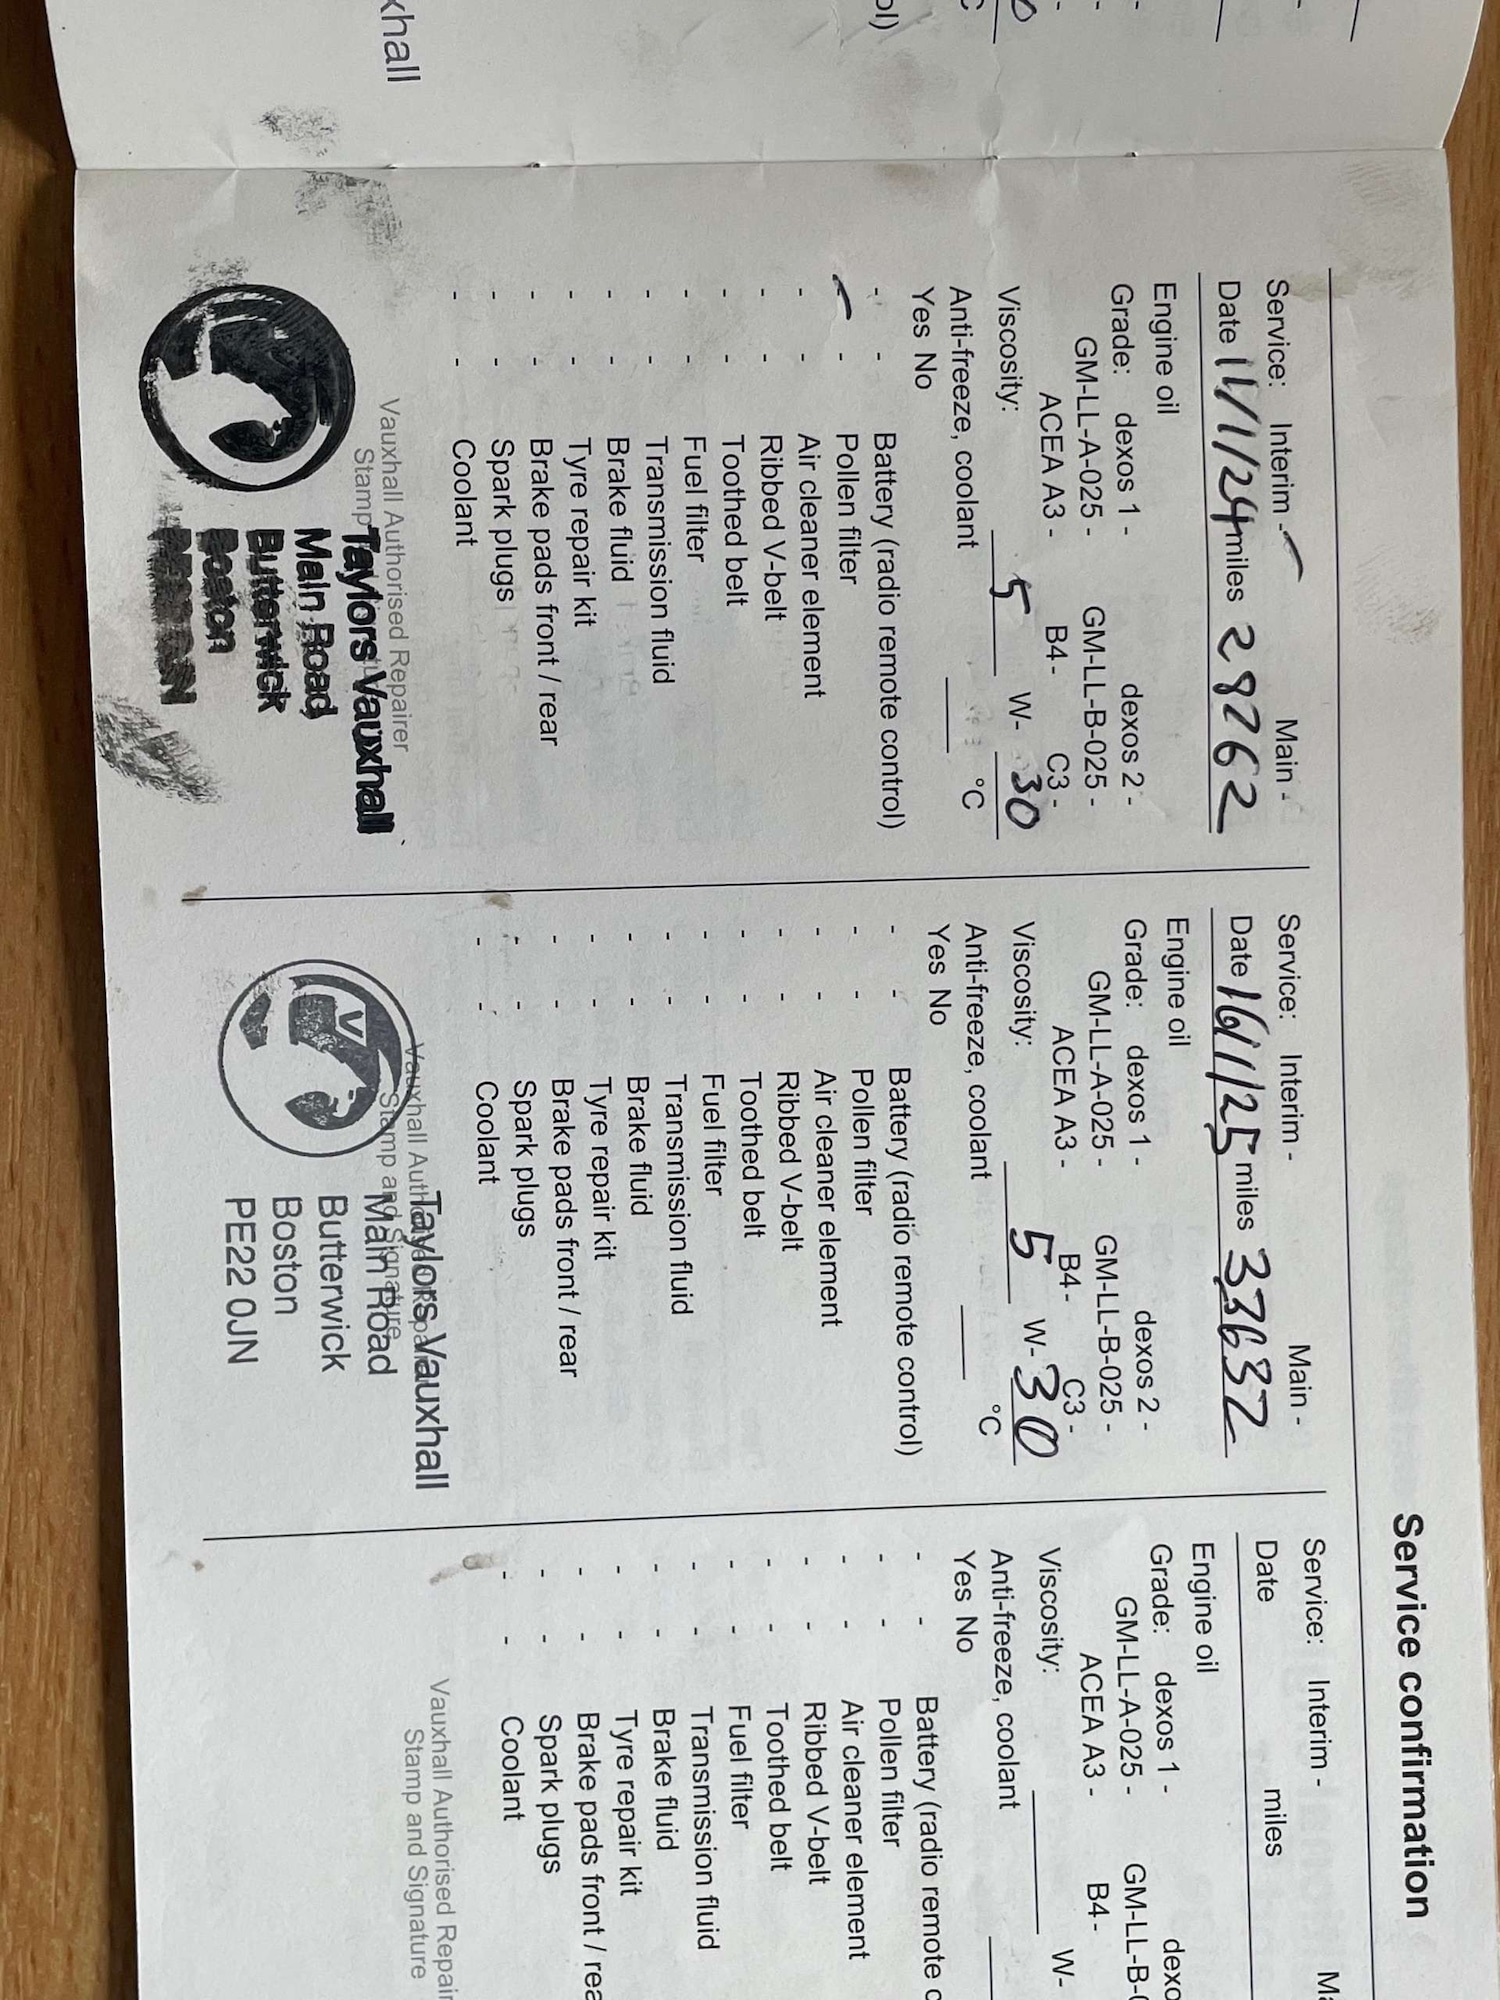 xhall
ol)
C
Service confirmation
Service: Interim - Main -
Date 11/1/24 miles 28262
Engine oil
Grade: dexos 1 - dexos 2 -
GM-LL-A-025 - GM-LL-B-025 -
ACEA A3 - B4 - C3 -
Viscosity: 5 W- 30
Anti-freeze, coolant °C
Yes No
- - Battery (radio remote control)
- Pollen filter
- - Air cleaner element
- - Ribbed V-belt
- - Toothed belt
- - Fuel filter
- - Transmission fluid
- - Brake fluid
- - Tyre repair kit
- - Brake pads front / rear
- - Spark plugs
- - Coolant
Vauxhall Authorised Repairer
Stamp
Taylors Vauxhall
Main Road
Butterwick
Boston
Service: Interim - Main -
Date 16/1/25 miles 33632
Engine oil
Grade: dexos 1 - dexos 2 -
GM-LL-A-025 - GM-LL-B-025 -
ACEA A3 - B4 - C3 -
Viscosity: 5 W- 30
Anti-freeze, coolant °C
Yes No
- - Battery (radio remote control)
- - Pollen filter
- - Air cleaner element
- - Ribbed V-belt
- - Toothed belt
- - Fuel filter
- - Transmission fluid
- - Brake fluid
- - Tyre repair kit
- - Brake pads front / rear
- - Spark plugs
- - Coolant
Vauxhall Authorised Repairer
Stamp and Signature
V
Taylors Vauxhall
Main Road
Butterwick
Boston
PE22 0JN
Service: Interim - Ma
Date miles
Engine oil
Grade: dexos 1 - dexo
GM-LL-A-025 - GM-LL-B-0
ACEA A3 - B4 -
Viscosity: W-
Anti-freeze, coolant
Yes No
- - Battery (radio remote c
- - Pollen filter
- - Air cleaner element
- - Ribbed V-belt
- - Toothed belt
- - Fuel filter
- - Transmission fluid
- - Brake fluid
- - Tyre repair kit
- - Brake pads front / rea
- - Spark plugs
- - Coolant
Vauxhall Authorised Repair
Stamp and Signature